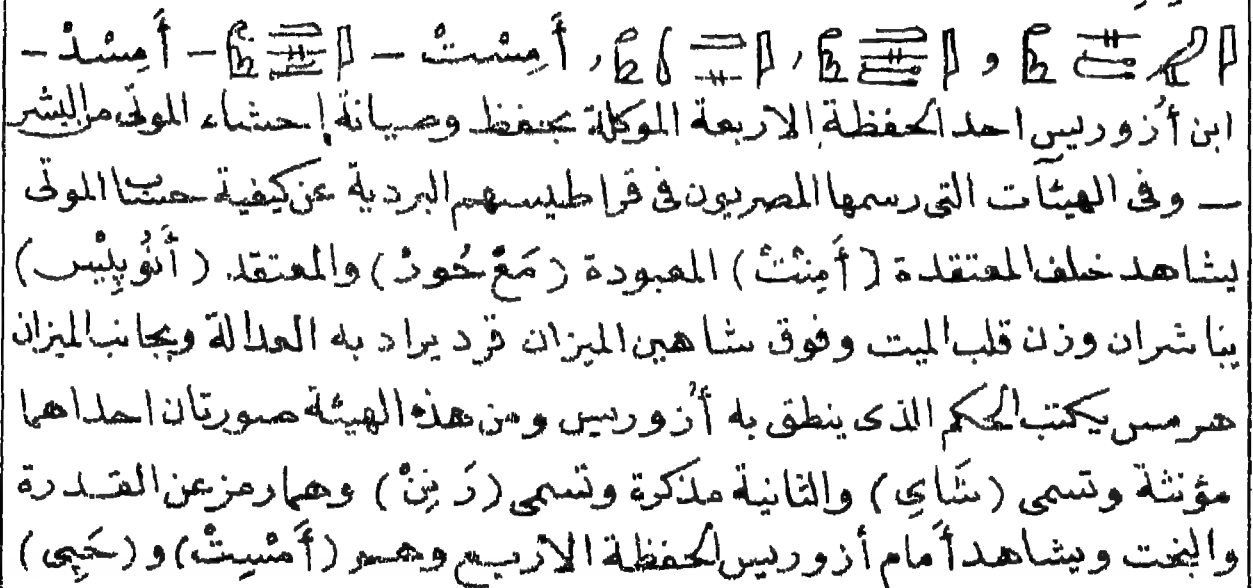 و , , أَمِسْتْ — — أَمِسْدْ —
ابن أُزوريس احد الحفظة الاربعة الموكلة بحفظ وصيانة إحشاء الموتى من البشر
— وفى الهيئآت التى رسمها المصريون فى قراطيسهم البردية عن كيفية حساب الموتى
يشاهد خلف المعتقدة (أَمِنْتْ) المعبودة (مَعْ حُورْ) والمعتقد (أَنُوبِيْس)
يباشران وزن قلب الميت وفوق شاهين الميزان قرد يراد به العدالة وبجانب الميزان
هرمس يكتب الحكم الذى ينطق به أُزوريس ومن هذه الهيئة صورتان احداهما
مؤنثة وتسمى (شَاىِ) والثانية مذكرة وتسمى (رَنِنْ) وهما رمز عن القدرة
والبخت ويشاهد أمام أزوريس الحفظة الاربع وهم (أَمْسِيتْ) و (حَبِى)